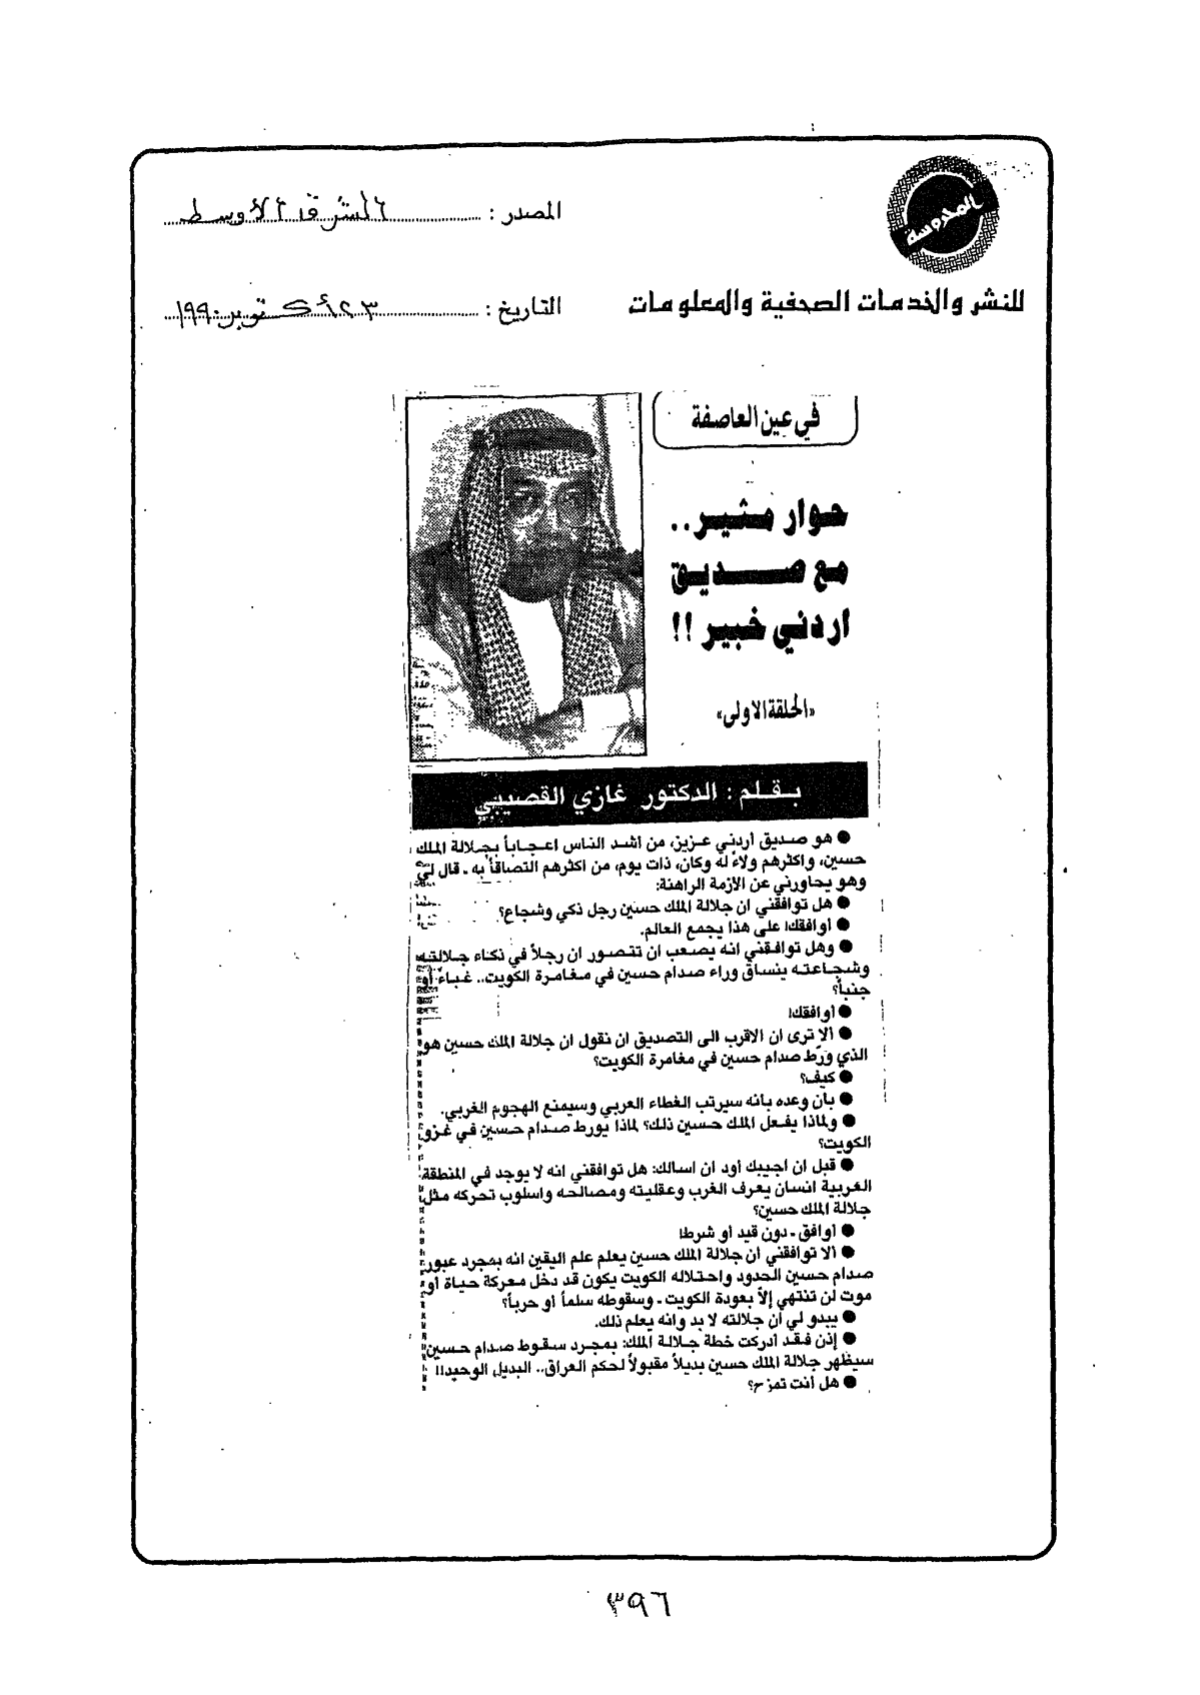 المحروسة
المصدر : الشرق الأوسط
للنشر والخدمات الصحفية والمعلومات
التاريخ : ٢٣ أكتوبر ١٩٩٠
في عين العاصفة
حوار مثير..
مع صديق
اردني خبير !!
«الحلقة الاولى»
بقلم : الدكتور غازي القصيبي
● هو صديق أردني عزيز، من أشد الناس اعجاباً بجلالة الملك
حسين، واكثرهم ولاءً له وكان، ذات يوم، من اكثرهم التصاقاً به - قال لي
وهو يحاورني عن الازمة الراهنة:
● هل توافقني ان جلالة الملك حسين رجل ذكي وشجاع؟
● أوافقك! على هذا يجمع العالم.
● وهل توافقني انه يصعب ان تتصور ان رجلاً في ذكاء جلالته
وشجاعته ينساق وراء صدام حسين في مغامرة الكويت.. غباءً أو
جنباً؟
● أوافقك!
● ألا ترى ان الاقرب الى التصديق ان نقول ان جلالة الملك حسين هو
الذي ورّط صدام حسين في مغامرة الكويت؟
● كيف؟
● بأن وعده بانه سيرتب الغطاء العربي وسيمنع الهجوم الغربي.
● ولماذا يفعل الملك حسين ذلك؟ لماذا يورط صدام حسين في غزو
الكويت؟
● قبل ان اجيبك أود ان اسالك: هل توافقني انه لا يوجد في المنطقة
العربية انسان يعرف الغرب وعقليته ومصالحه واسلوب تحركه مثل
جلالة الملك حسين؟
● أوافق - دون قيد أو شرط!
● ألا توافقني أن جلالة الملك حسين يعلم علم اليقين انه بمجرد عبور
صدام حسين الحدود واحتلاله الكويت يكون قد دخل معركة حياة أو
موت لن تنتهي إلاّ بعودة الكويت - وسقوطه سلماً أو حرباً؟
● يبدو لي أن جلالته لا بد وانه يعلم ذلك.
● إذن فقد أدركت خطة جلالة الملك: بمجرد سقوط صدام حسين
سيظهر جلالة الملك حسين بديلاً مقبولاً لحكم العراق.. البديل الوحيد!!
● هل أنت تمزح؟
٣٩٦